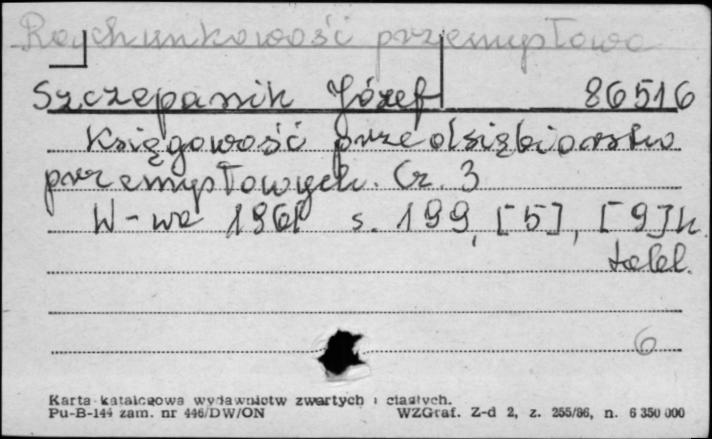 Rachunkowość przemysłowa
Szczepanik Józef 86516
Księgowość przedsiębiorstw
przemysłowych. Cz. 3
W-wa 1961 s. 199, [5], [9] k.
tabl.
6
Karta katalogowa wydawnictw zwartych i ciągłych.
Pu-B-144 zam. nr 446/DW/ON WZGraf. Z-d 2, z. 255/86, n. 6 350 000